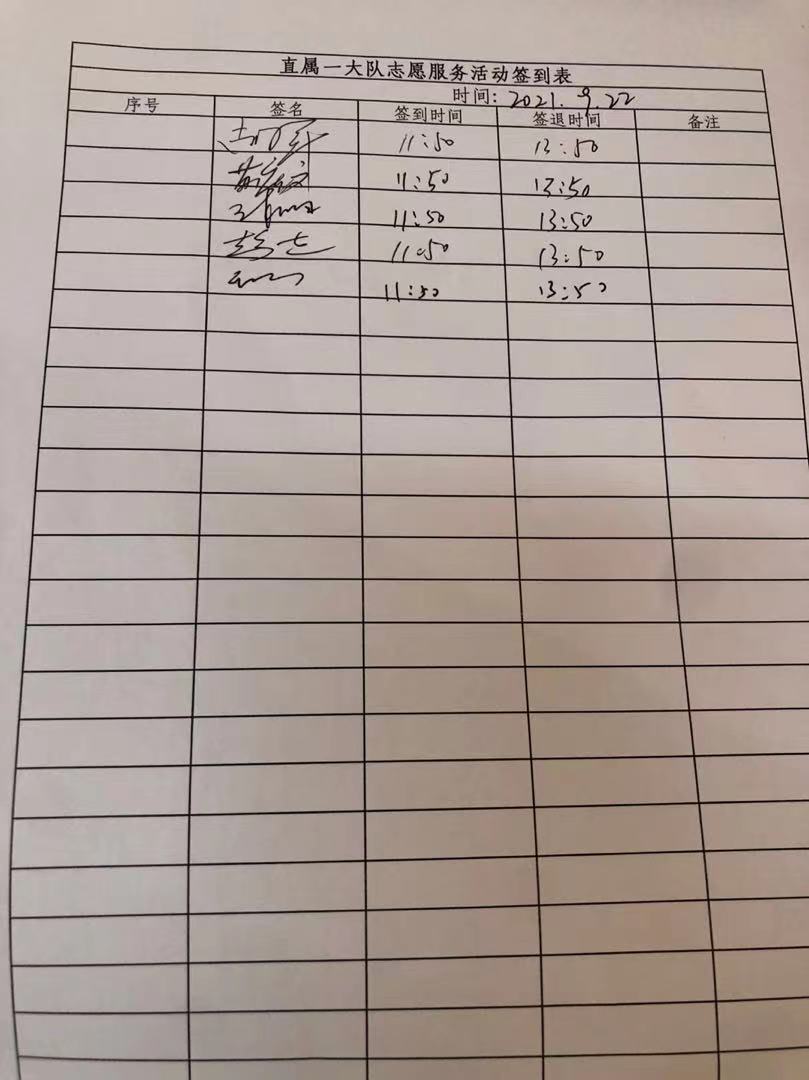 直属一大队志愿服务活动签到表
时间: 2021.9.22
序号 签名 签到时间 签退时间 备注
11:50 13:50
11:50 13:50
11:50 13:50
11:50 13:50
11:50 13:50